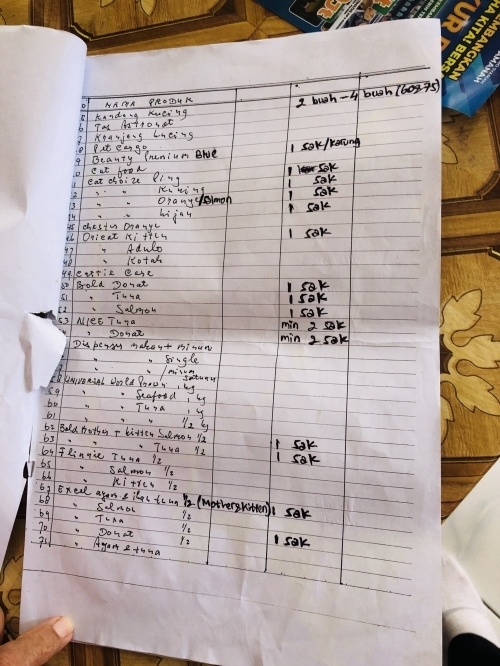 NAMA PRODUK 2 buah – 4 buah (60x75)
Kandang Kucing
Tas Astronot
Kranjang Kucing
Pet Cargo 1 sak/karung
9 Beauty Premium Blue
Cat food 1 sak
Cat choize Ping 1 sak
2 " " Kuning 1 sak
3 " " Orange/Salmon 1 sak
14 " " hijau
45 Chester Orange 1 sak
46 Orient Kitten
47 " Adult
48 " Kotak
49 Castle Case
50 Bold Donat 1 sak
51 " Tuna 1 sak
52 " Salmon 1 sak
53 NICE Tuna min 2 sak
Donat min 2 sak
Dispenser makan + minum
" " Single
" " / minum
UNIVERSAL World Prown 1 kg
59 " " Seafood 1 kg
60 " " Tuna 1 kg
61 " " 1/2 kg
62 Bold Mother + kitten Salmon 1/2
63 " " Tuna 1/2 1 sak
64 Tuna 1/2 1 sak
65 Salmon 1/2
66 " Kitten 1/2
67 Excel ayam & ikan tuna 1/2 (Mother&kitten) 1 sak
68 " Salmon 1/2
69 " Tuna 1/2
70 " Donat 1/2 1 sak
71 " Ayam & tuna